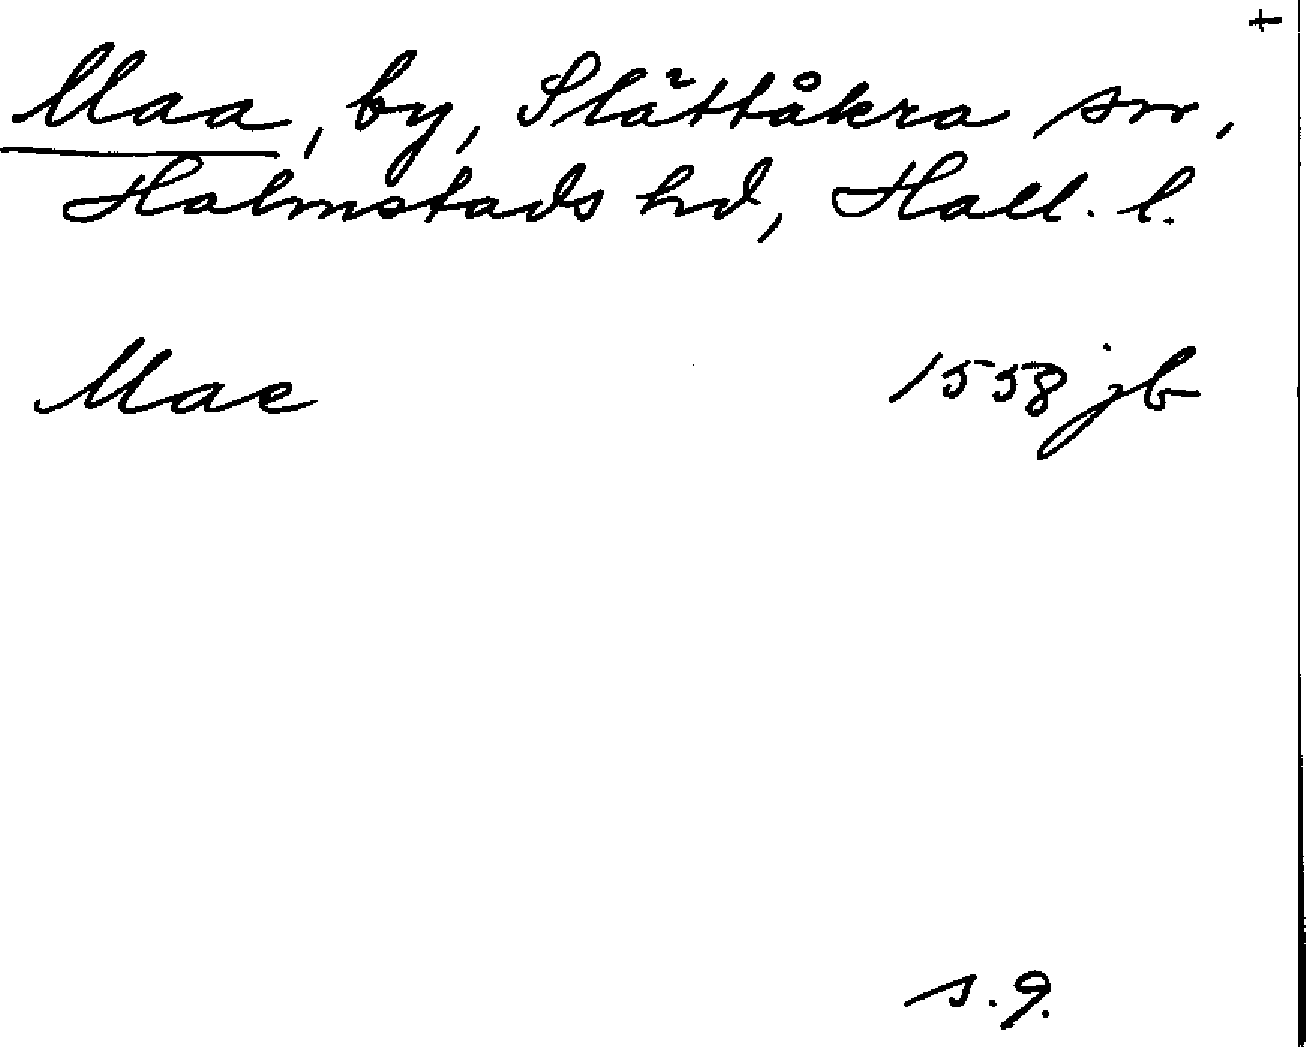 +
Maa, by, Slättåkra sn,
Halmstads hd, Hall. l.
Mae 1558 jb
s. 9.